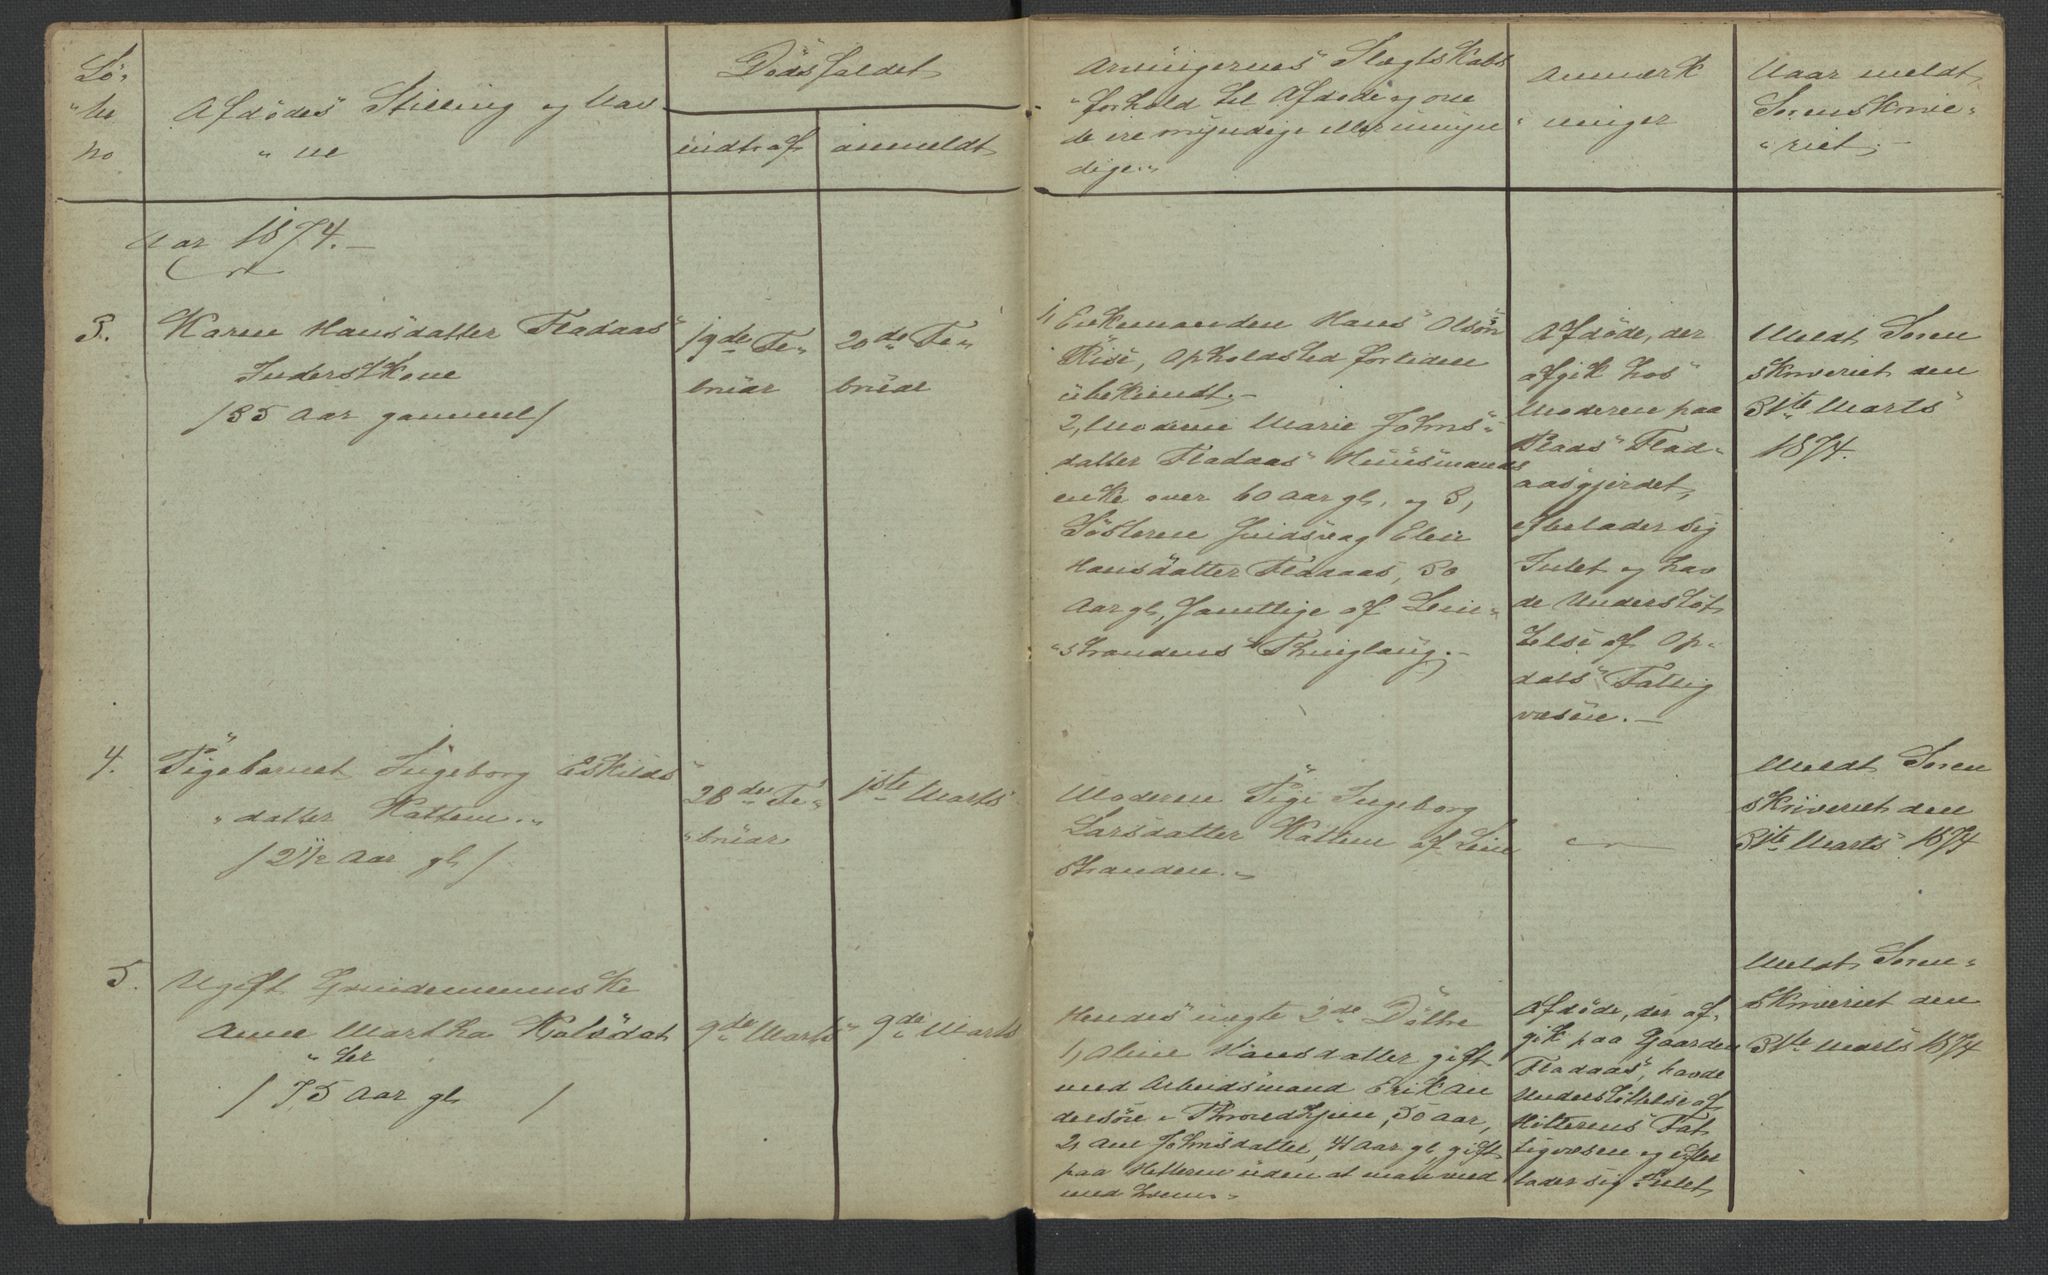 Lö-
"be
no
Afdödes Stilling og Nav
"ne
Dödsfaldet
indtraf
anmeldt
Arvingernes Slægtskabs
"forhold til Afdöde og om
de ere myndige eller umyn
dige.
Anmærk
"ninger
Naar meldt
Sorenskrive-
"riet.-
Aar 1874.-
3.
Karen Hansdatter Fladaas
Inderstkone
/35 Aar gammel/
19de Fe-
bruar
20de Fe-
bruar
1, Enkemanden Hans Olsön
Rise, Opholdsted fortiden
ubekiendt.-
2, Moderen Marie Johns-
datter Fladaas Huusmands
enke over 60 Aar gl. og 3,
Sösteren Elen
Hansdatter Fladaas, 30
Aar gl, Samtlige af Lein-
"strandens Thinglaug.-
Afdöde, der
afgik hos
Moderen paa
Plads Flad-
aasgjerdet,
efterlader sig
Intet og hav
de Understöt
telse af Op-
dals Fattig
væsen.-
Meldt Soren
skriveriet den
31te Marts
1874.
4.
Pigebarnet Ingeborg Eskilds
"datter Kattem.
/2 1/2 Aar gl/
28de Fe-
"bruar
1ste Marts
Moderen Pige Ingeborg
Larsdatter Kattem af Lein
stranden.-
Meldt Soren
skriveriet den
31te Marts 1874
5.
Ugift Qvindemenneske
Anne Martha Rolsdat
"ter
/75 Aar gl /
9de Marts
9de Marts
Hendes uægte 2de Döttre
1, Oline Hansdatter gift
med Arbeidsmand Erik An
dersön i Throndhjem, 50 Aar,
2, Ane Johnsdatter, 41 Aar gl, gift
paa Hitteren uden at man ved
med hvem.-
Afdöde, der af-
gik paa Gaarden
Fladaas, havde
Understöttelse af
Hitterens Fat
tigvæsen og efter
lader sig Intet
Meldt Soren-
skriveriet den
31te Marts 1874